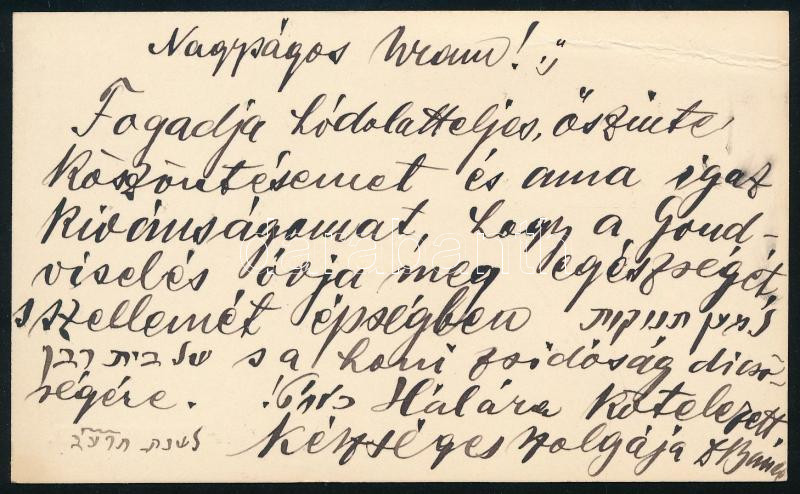 Nagyságos Uram!
Fogadja hódolatteljes, őszinte
köszöntésemet és ama igaz
kívánságomat, hogy a Gond-
viselés óvja meg egészségét,
s szellemét épségben למען תינוקות
של בית רבן s a honi zsidóság dicső-
ségére. Hálára kötelezett
לשנת תרע״ב készséges szolgája
darabanth